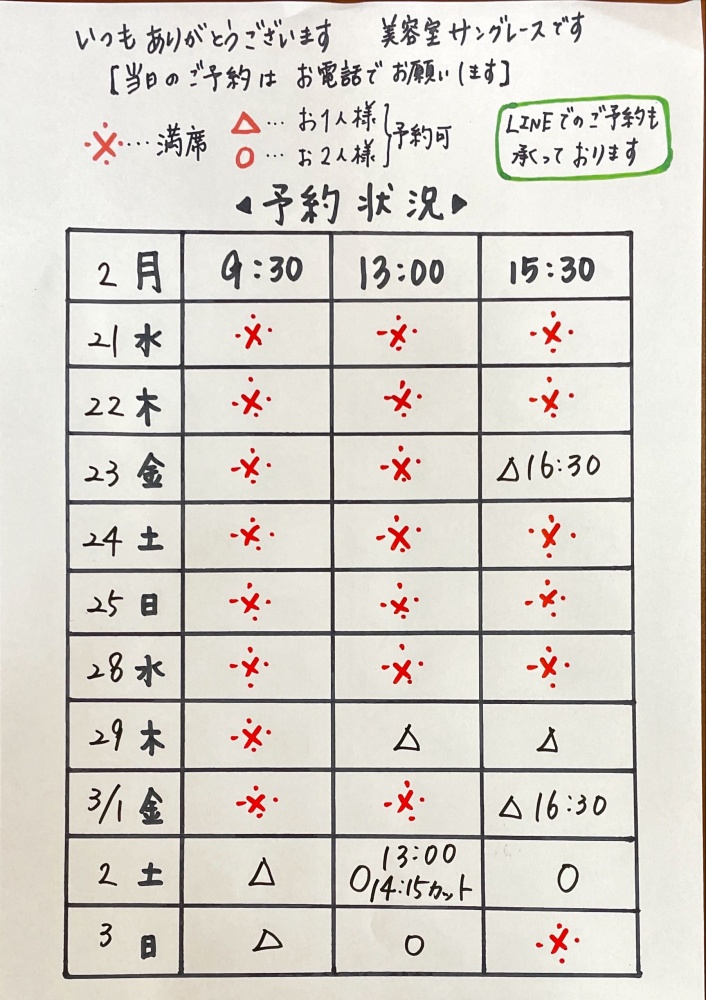 いつもありがとうございます 美容室サングレースです
[当日のご予約は お電話で お願いします]
※…満席 △…お1人様 ○…お2人様 予約可
LINEでのご予約も
承っております
◀予約状況▶
2月 9:30 13:00 15:30
21 水 ※ ※ ※
22 木 ※ ※ ※
23 金 ※ ※ △16:30
24 土 ※ ※ ※
25 日 ※ ※ ※
28 水 ※ ※ ※
29 木 ※ △ △
3/1 金 ※ ※ △16:30
2 土 △ 13:00 ○14:15カット ○
3 日 △ ○ ※